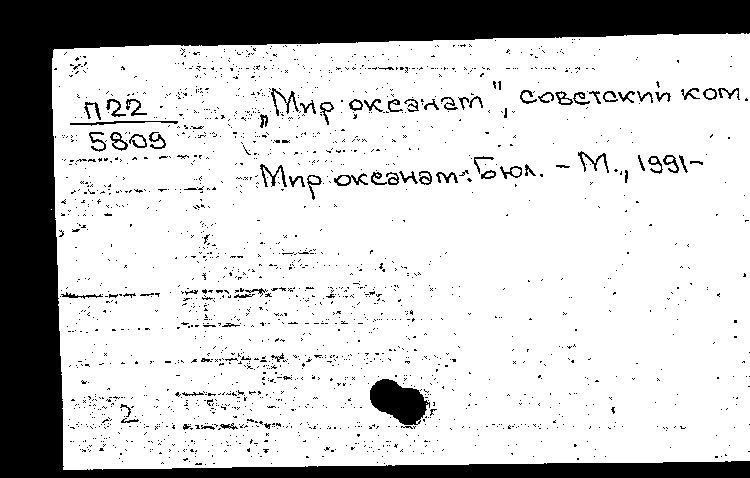 П22
5809
„Мир океанам", советский ком.
Мир океанам: Бюл. - М., 1991-
2